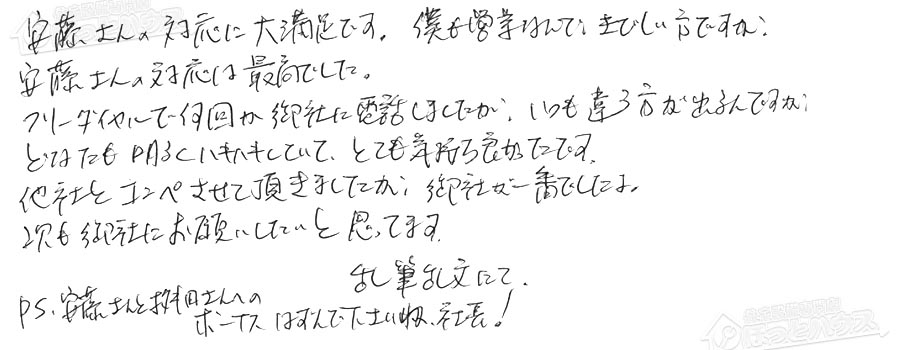 安藤さんの対応に大満足です。僕も営業なんで、きびしい方ですが、
安藤さんの対応は最高でした。
フリーダイヤルで何回か御社に電話しましたが、いつも違う方が出るんですが、
どなたも明るくハキハキしていて、とても気持ち良かったです。
他社とコンペさせて頂きましたが、御社が一番でしたよ。
次も御社にお願いしたいと思ってます。
乱筆乱文にて。
PS、安藤さんと さんへの
ボーナスはずんで下さいね、社長!
ほっとハウス